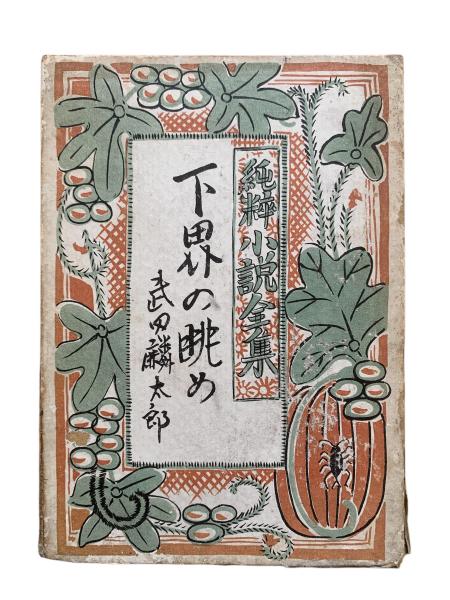 純粋小説全集
下界の眺め
武田麟太郎